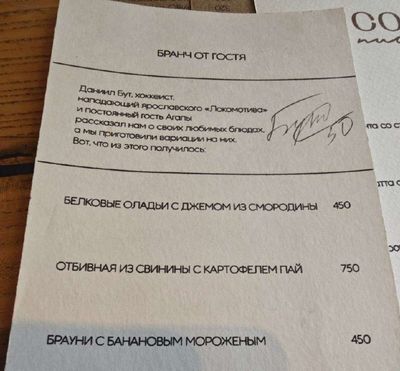 БРАНЧ ОТ ГОСТЯ
Даниил Бут, хоккеист,
нападающий ярославского «Локомотива»
и постоянный гость Агапы
рассказал нам о своих любимых блюдах,
а мы приготовили вариации на них.
Вот, что из этого получилось:
50
БЕЛКОВЫЕ ОЛАДЬИ С ДЖЕМОМ ИЗ СМОРОДИНЫ 450
ОТБИВНАЯ ИЗ СВИНИНЫ С КАРТОФЕЛЕМ ПАЙ 750
БРАУНИ С БАНАНОВЫМ МОРОЖЕНЫМ 450
CO